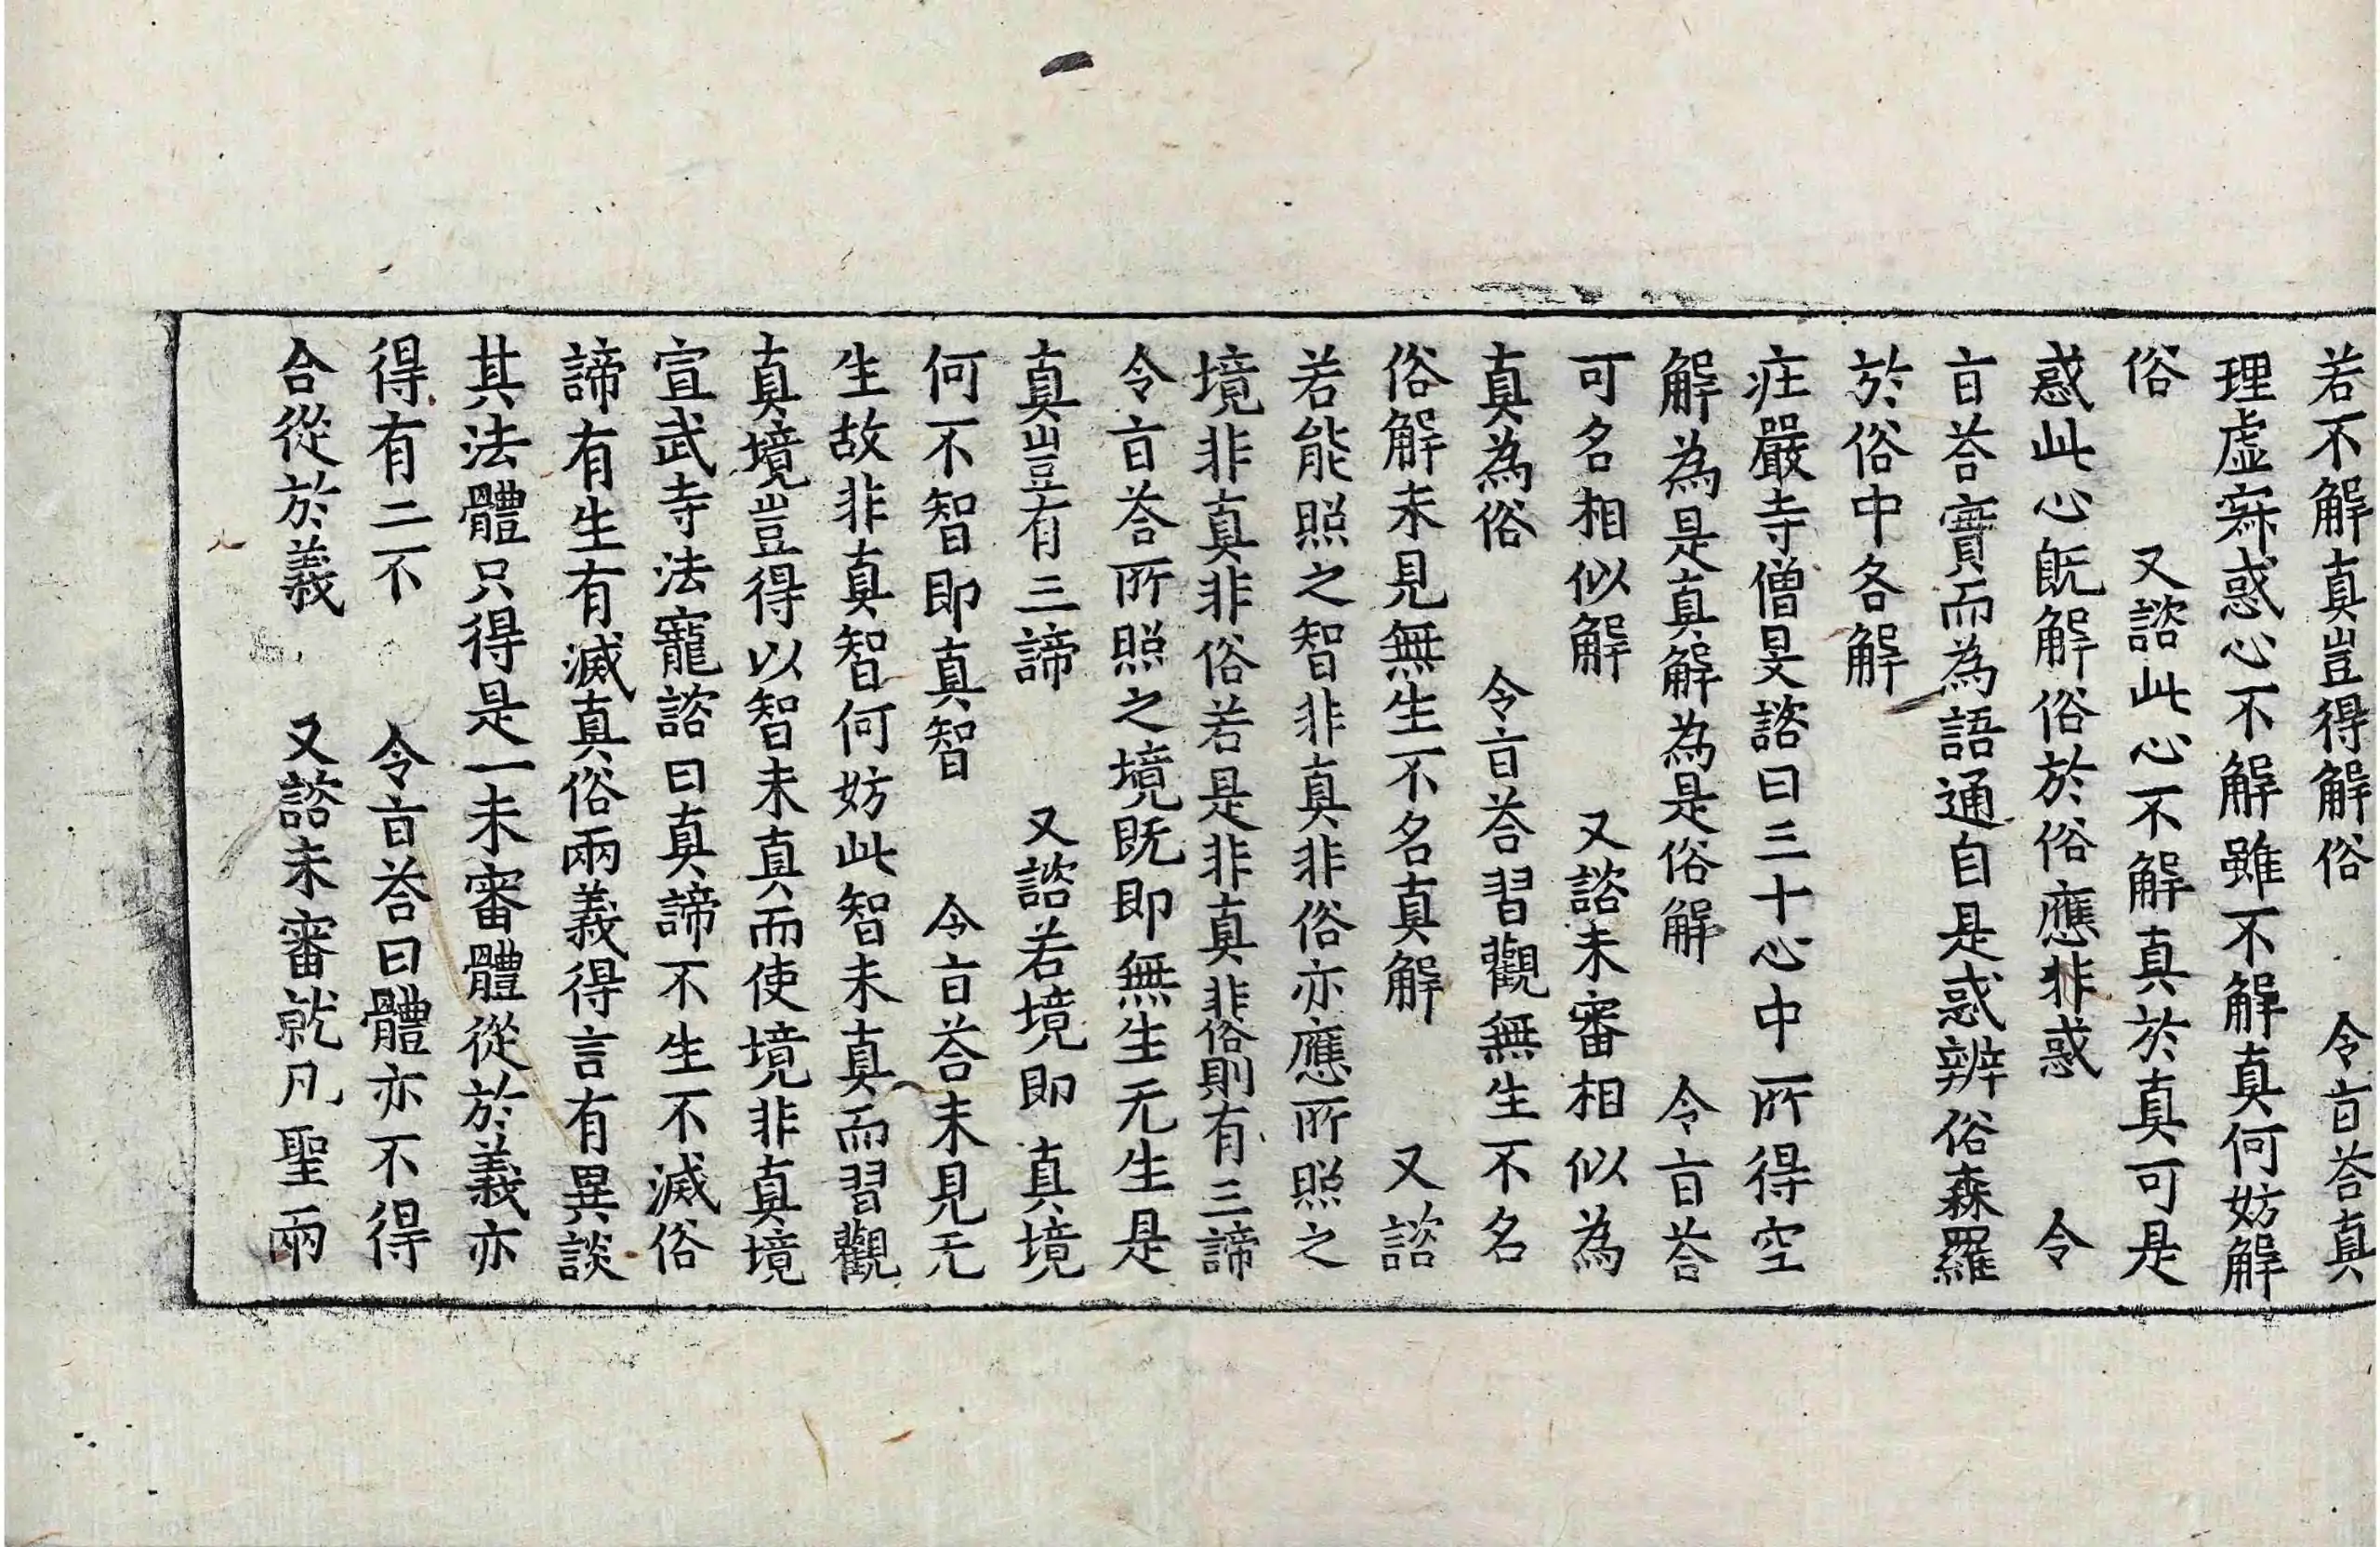 若不解真豈得解俗　令旨荅真
理虛寂惑心不解雖不解真何妨解
俗　又諮此心不解真於真可是
惑此心既解俗於俗應非惑　令
旨荅實而為語通自是惑辨俗森羅
於俗中各解
莊嚴寺僧旻諮曰三十心中所得空
解為是真解為是俗解　令旨荅
可名相似解　又諮未審相似為
真為俗　令旨荅習觀無生不名
俗解未見無生不名真解　又諮
若能照之智非真非俗亦應所照之
境非真非俗若是非真非俗則有三諦
令旨荅所照之境既即無生无生是
真豈有三諦　又諮若境即真境
何不智即真智　令旨荅未見无
生故非真智何妨此智未真而習觀
真境豈得以智未真而使境非真境
宣武寺法寵諮曰真諦不生不滅俗
諦有生有滅真俗兩義得言有異談
其法體只得是一未審體從於義亦
得有二不　令旨荅曰體亦不得
合從於義　又諮未審就凡聖兩